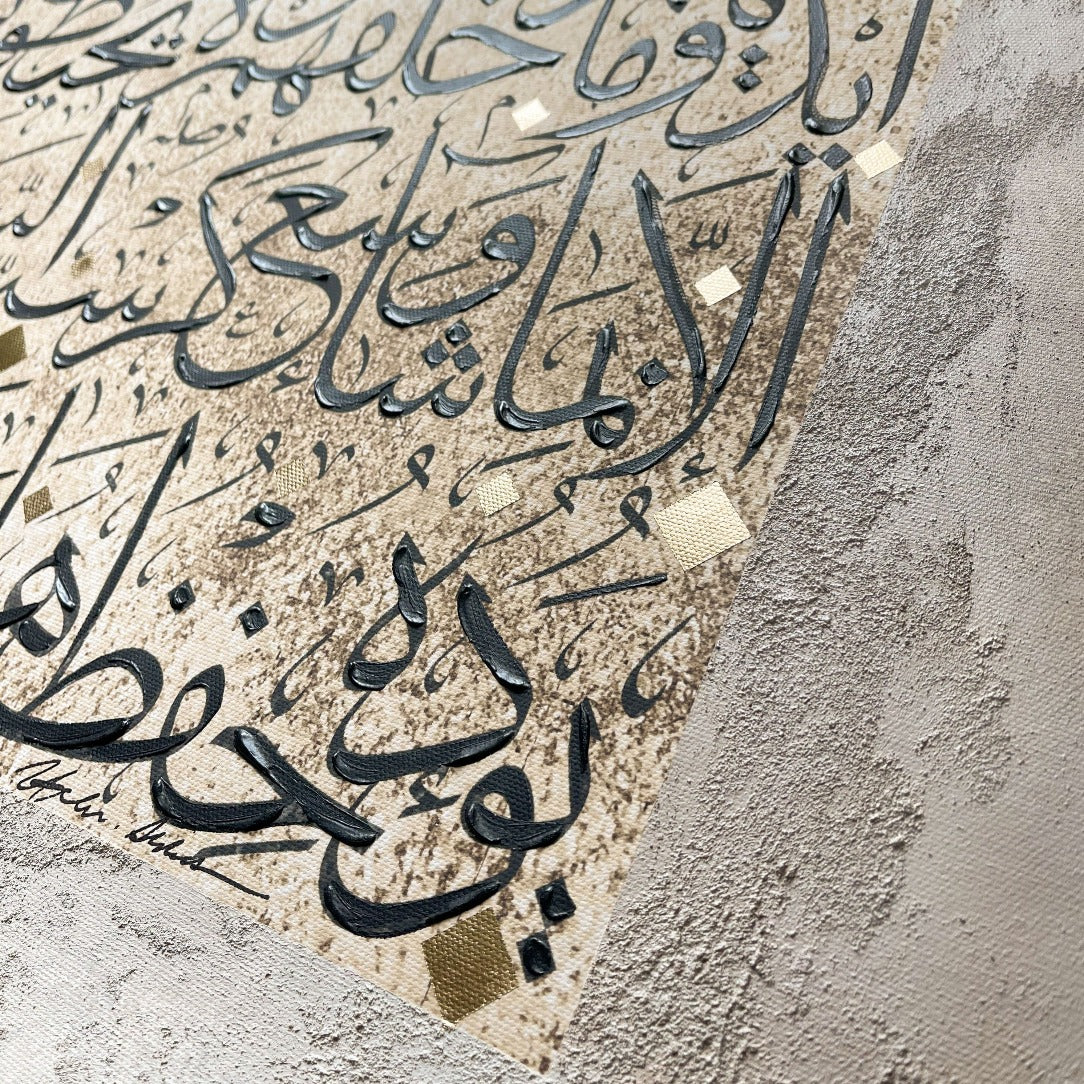 أيديهم وما خلفهم ولا يحيطو
إلا بما شاء وسع كرسيه الس
يؤده حفظهما